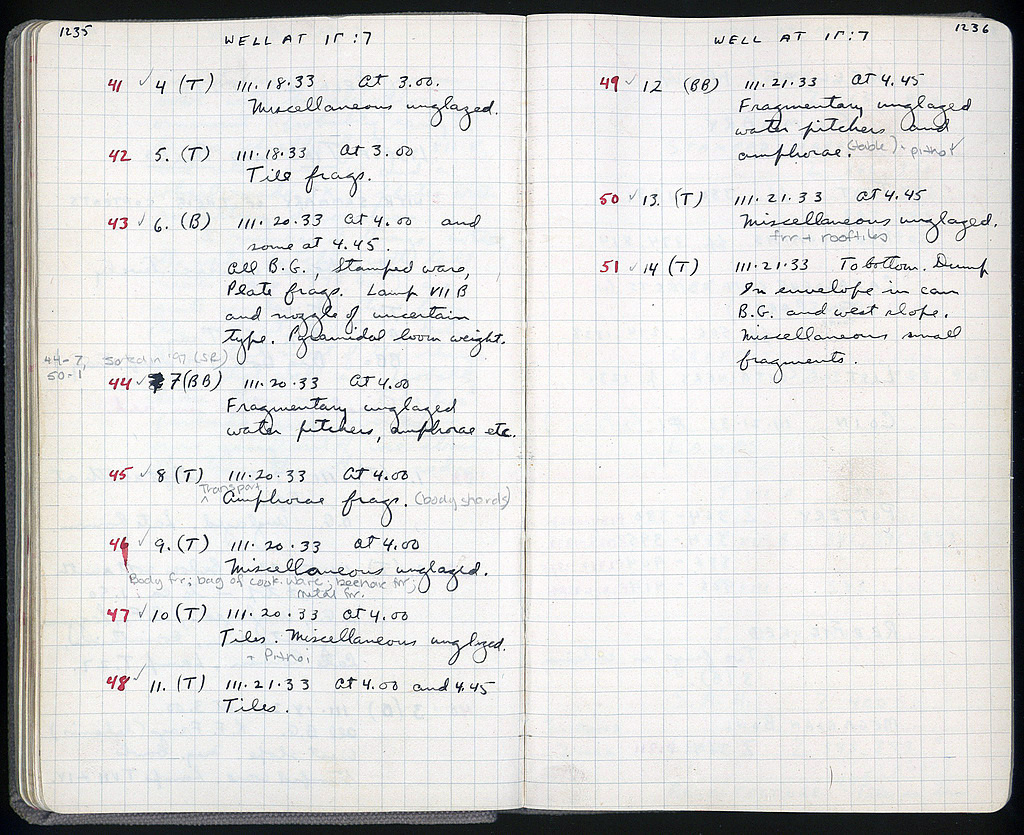 1235
WELL AT ΙΓ:7
41 ✓ 4 (T) III.18.33 At 3.00.
Miscellaneous unglazed.
42 5. (T) III.18.33 At 3.00
Tile frags.
43 ✓ 6. (B) III.20.33 At 4.00 and
some at 4.45.
All B.G., Stamped ware,
Plate frags. Lamp VII B
and nozzle of uncertain
type. Pyramidal loom weight.
44-7, sorted in '97 (SR)
50-1
44 ✓ 7 (BB) III.20.33 At 4.00
Fragmentary unglazed
water pitchers, amphorae etc.
45 ✓ 8 (T) III.20.33 At 4.00
^ Transport Amphorae frags. (body sherds)
46 ✓ 9. (T) III.20.33 At 4.00
Miscellaneous unglazed.
Body frr; bag of cook. ware; beehive fr;
metal fr.
47 ✓ 10 (T) III.20.33 At 4.00
Tiles. Miscellaneous unglazed.
+ Pithoi
48 ✓ 11. (T) III.21.33 At 4.00 and 4.45
Tiles.
1236
WELL AT ΙΓ:7
49 ✓ 12 (BB) III.21.33 At 4.45
Fragmentary unglazed
water pitchers and
amphorae. (table) + pithoi ✓
50 ✓ 13. (T) III.21.33 At 4.45
Miscellaneous unglazed.
frr + rooftiles
51 ✓ 14 (T) III.21.33 To bottom. Dump
In envelope in can
B.G. and west slope.
Miscellaneous small
fragments.